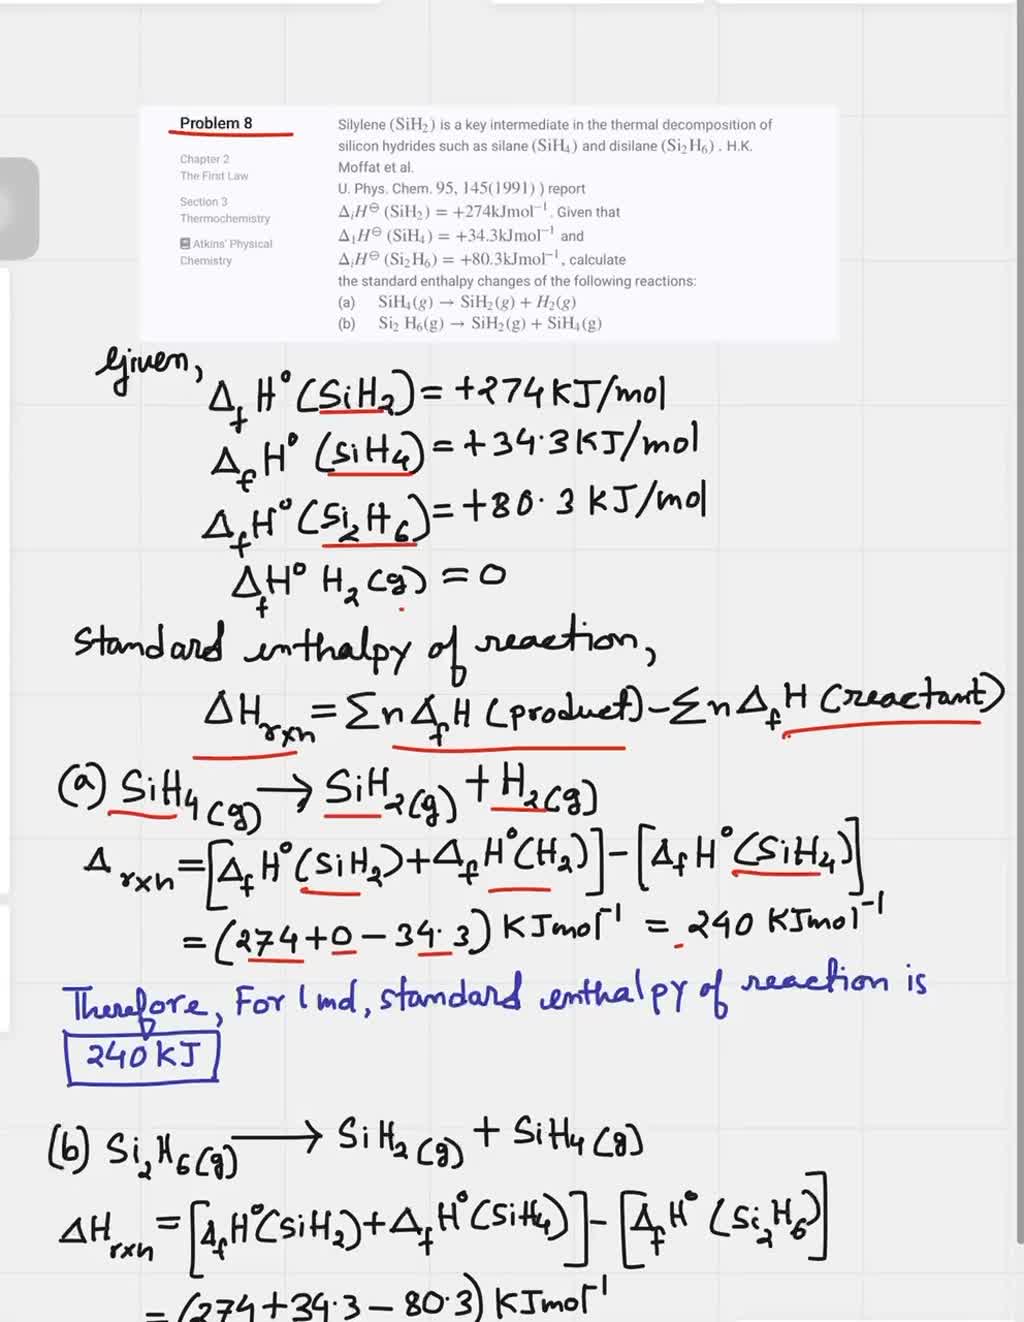 Problem 8
Chapter 2
The First Law
Section 3
Thermochemistry
Atkins' Physical
Chemistry
Silylene (SiH₂) is a key intermediate in the thermal decomposition of
silicon hydrides such as silane (SiH₄) and disilane (Si₂H₆) . H.K.
Moffat et al.
U. Phys. Chem. 95, 145(1991) ) report
ΔᵢH⊖ (SiH₂) = +274kJmol⁻¹. Given that
Δ₁H⊖ (SiH₄) = +34.3kJmol⁻¹ and
ΔᵢH⊖ (Si₂H₆) = +80.3kJmol⁻¹, calculate
the standard enthalpy changes of the following reactions:
(a) SiH₄(g) → SiH₂(g) + H₂(g)
(b) Si₂ H₆(g) → SiH₂(g) + SiH₄(g)
Given,
Δ_f H° (SiH₂) = +274 KJ/mol
Δ_f H° (SiH₄) = +34.3 KJ/mol
Δ_f H° (Si₂H₆) = +80.3 KJ/mol
Δ_f H° H₂(g) = 0
Standard enthalpy of reaction,
ΔH_rxn = Σn Δ_f H (product) - Σn Δ_f H (reactant)
(a) SiH₄(g) → SiH₂(g) + H₂(g)
Δ_rxn = [Δ_f H° (SiH₂) + Δ_f H° (H₂)] - [Δ_f H° (SiH₄)]
= (274+0-34.3) KJmol⁻¹ = 240 KJmol⁻¹
Therefore, For 1 mol, standard enthalpy of reaction is
240 KJ
(b) Si₂H₆(g) → SiH₂(g) + SiH₄(g)
ΔH_rxn = [Δ_f H° (SiH₂) + Δ_f H° (SiH₄)] - [Δ_f H° (Si₂H₆)]
= (274+34.3-80.3) KJmol⁻¹